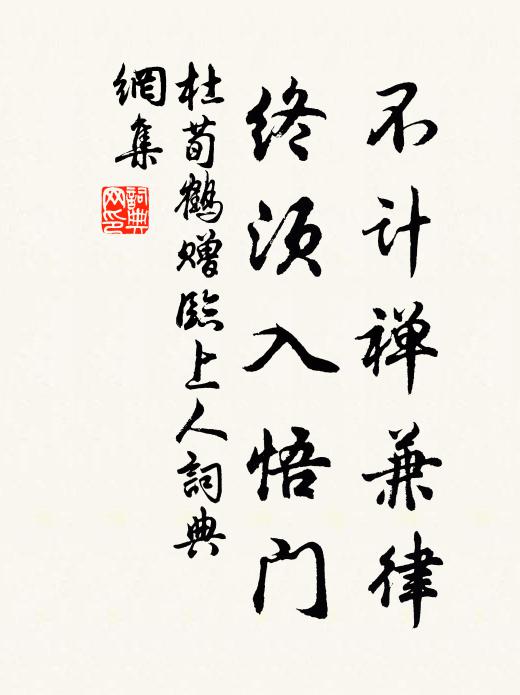 不计禅兼律
终须入悟门
杜荀鹤赠臨上人詞典
網集
詞典网印